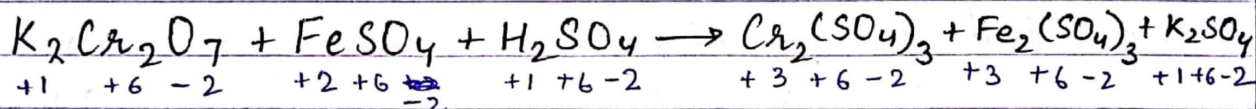 K₂Cr₂O₇ + FeSO₄ + H₂SO₄ ⟶ Cr₂(SO₄)₃ + Fe₂(SO₄)₃ + K₂SO₄
+1 +6 -2 +2 +6 -2 +1 +6 -2 +3 +6 -2 +3 +6 -2 +1 +6 -2